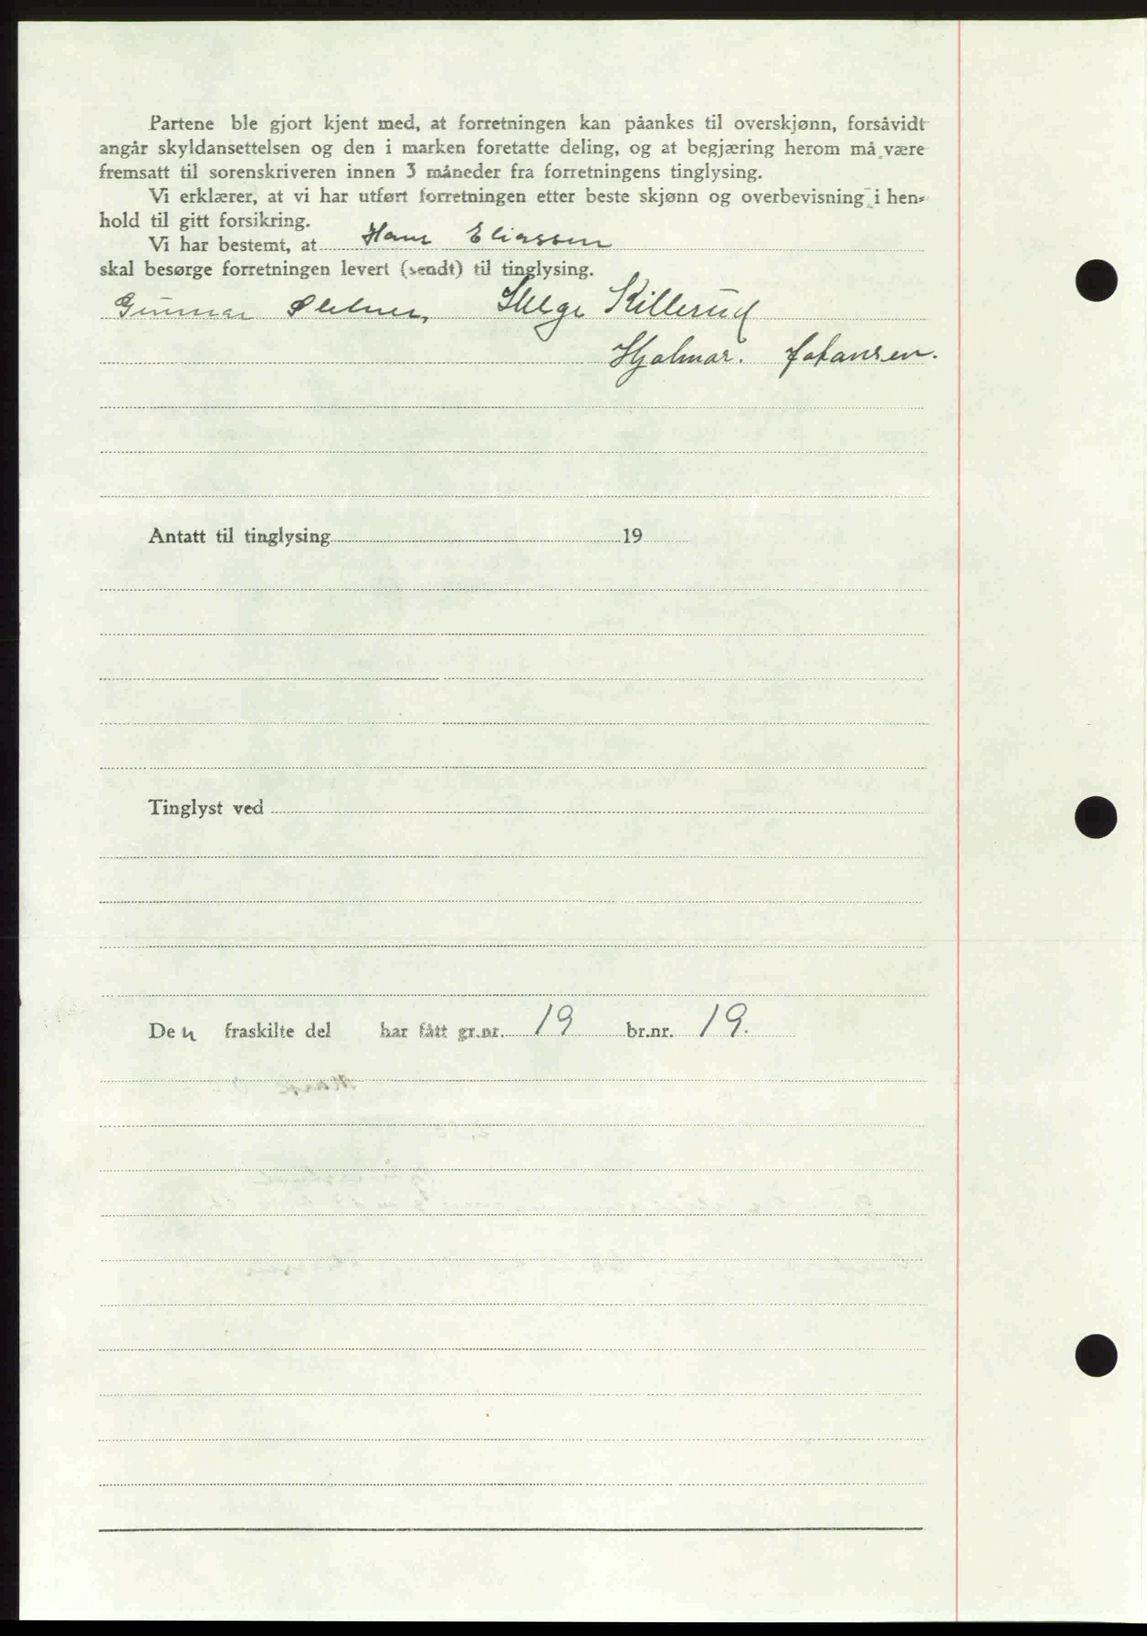 Partene ble gjort kjent med, at forretningen kan påankes til overskjønn, forsåvidt
angår skyldansettelsen og den i marken foretatte deling, og at begjæring herom må være
fremsatt til sorenskriveren innen 3 måneder fra forretningens tinglysing.
Vi erklærer, at vi har utført forretningen etter beste skjønn og overbevisning i hen-
hold til gitt forsikring.
Vi har bestemt, at Hans Eliassen
skal besørge forretningen levert (sendt) til tinglysing.
Gunnar Helge Killerud
Hjalmar. Johansen.
Antatt til tinglysing 19
Tinglyst ved
Den fraskilte del har fått gr.nr. 19 br.nr. 19.